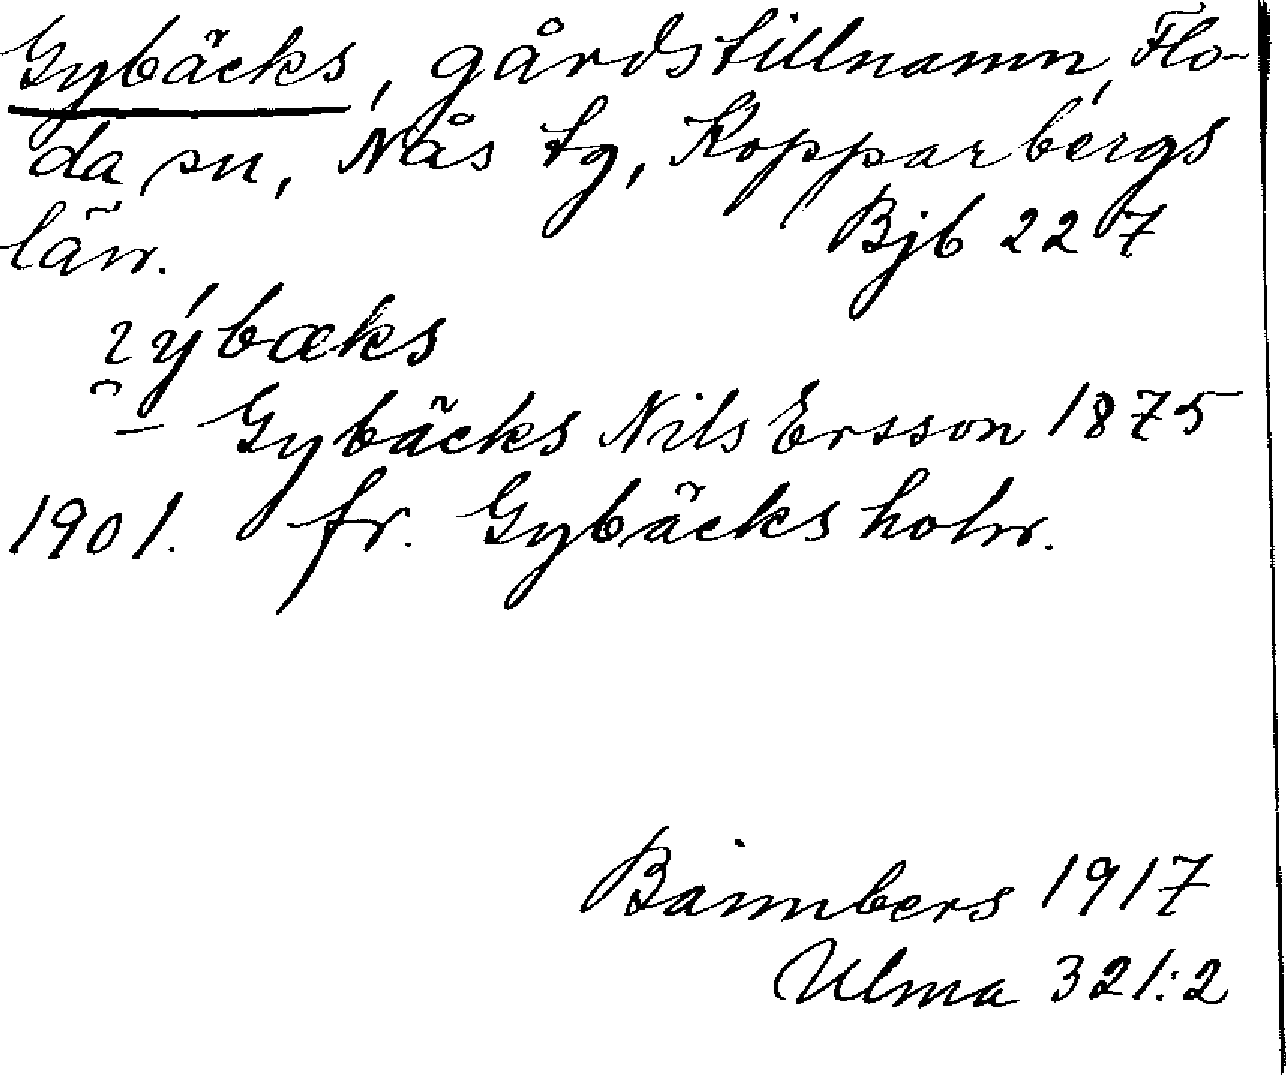 Gybäcks, gårdstillnamn, Flo-
da sn, Nås tg, Kopparbergs
län. Bjb 227
ýbæks
Gybäcks Nils Ersson 1875
1901. fr. Gybäcksholn.
Bannbers 1917
Ulma 321:2